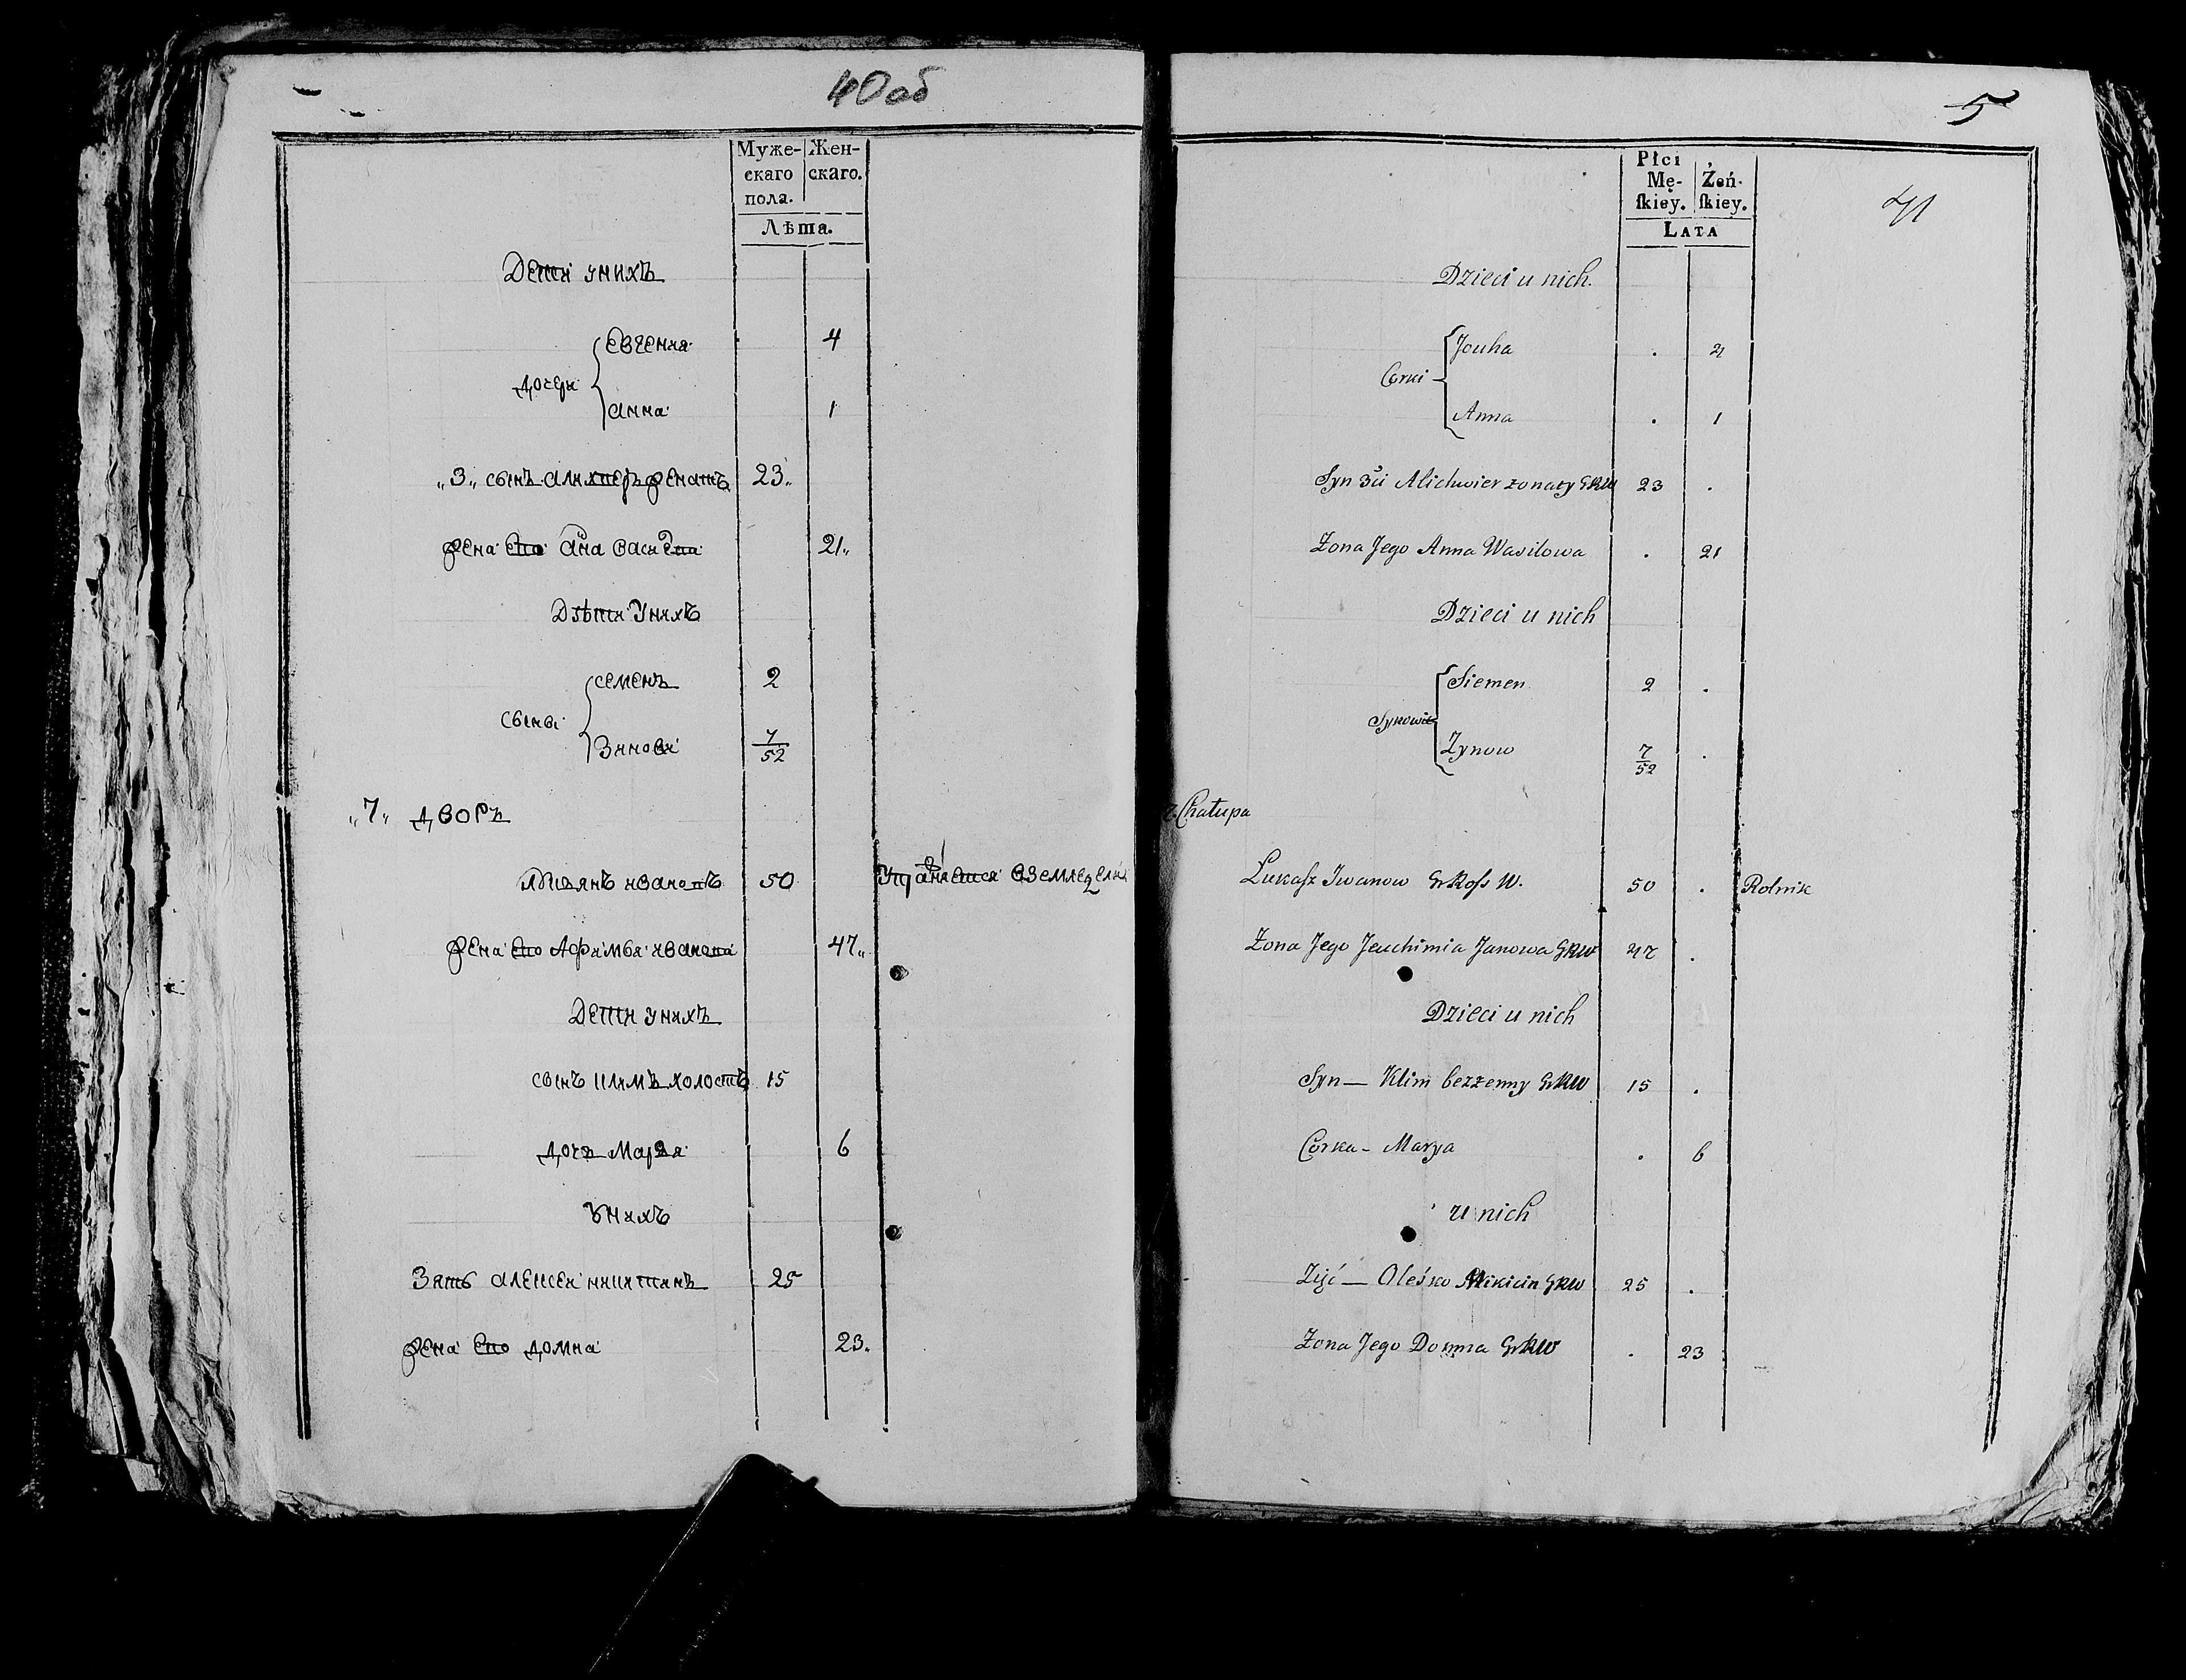 40 об
Муже- Жен-
скаго скаго.
пола.
Лѣта.
Дети унихъ
Евгения 4
дочери
Анна 1
„3„ сынъ Алихверъ женатъ 23„
жена его Анна Василева 21„
Дѣти унихъ
Семенъ 2
сыны
Зинови 7/52
„7„ дворъ
Лукянъ Ивановъ 50
жена его Афимья Иванова 47„
Дети унихъ
сынъ Климъ холостъ 15
дочь Маря 6
унихъ
Зять Алексеи Никитинъ 25
жена его Домна 23„
5
41
Płci
Mę- Żeń-
ſkiey. ſkiey.
LATA
Dzieci u nich.
Jouha . 4
Corki
Anna . 1
Syn 3ci Alichwier żonaty GRW 23 .
Żona Jego Anna Wasilowa . 21
Dzieci u nich
Siemen 2 .
Synowie
Zynow 7/52 .
7. Chałupa
Łukaſz Iwanow GrRoſs W. 50 . Rolnik
Żona Jego Jeuchimia Janowa GRW 47 .
Dzieci u nich
Syn — Klim bezżenny GRW 15 .
Corka - Marya . 6
u nich
Zięć — Oleśko Mikicin GRW 25 .
Żona Jego Domna GRW . 23